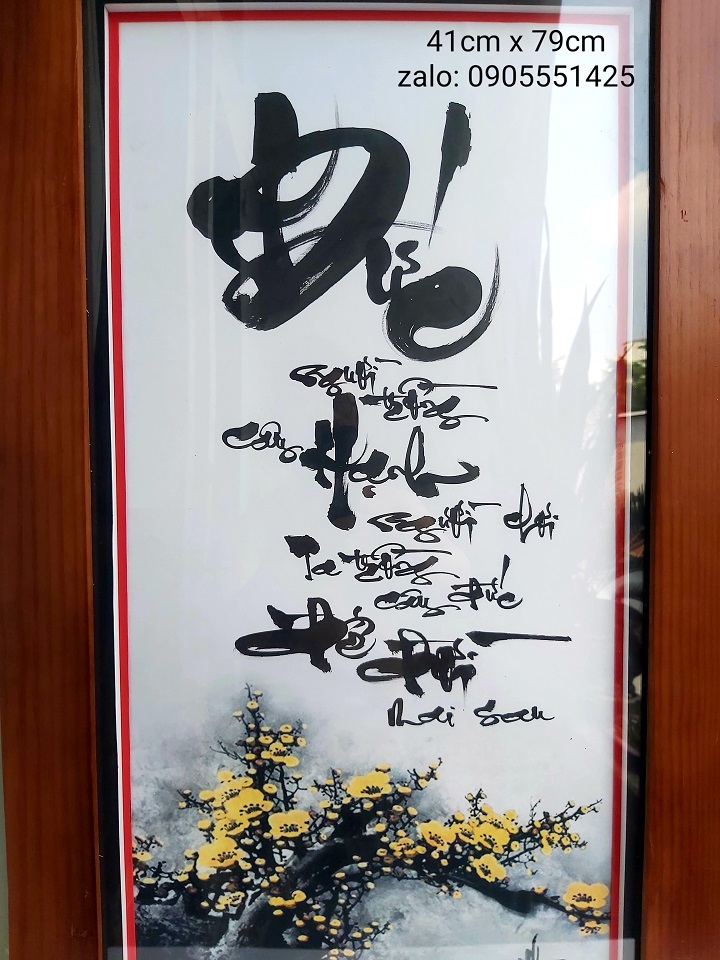 41cm x 79cm
zalo: 0905551425
Đức
Người trồng
cây Hạnh
người chơi
Ta trồng
cây đức
Để Đời
mai sau